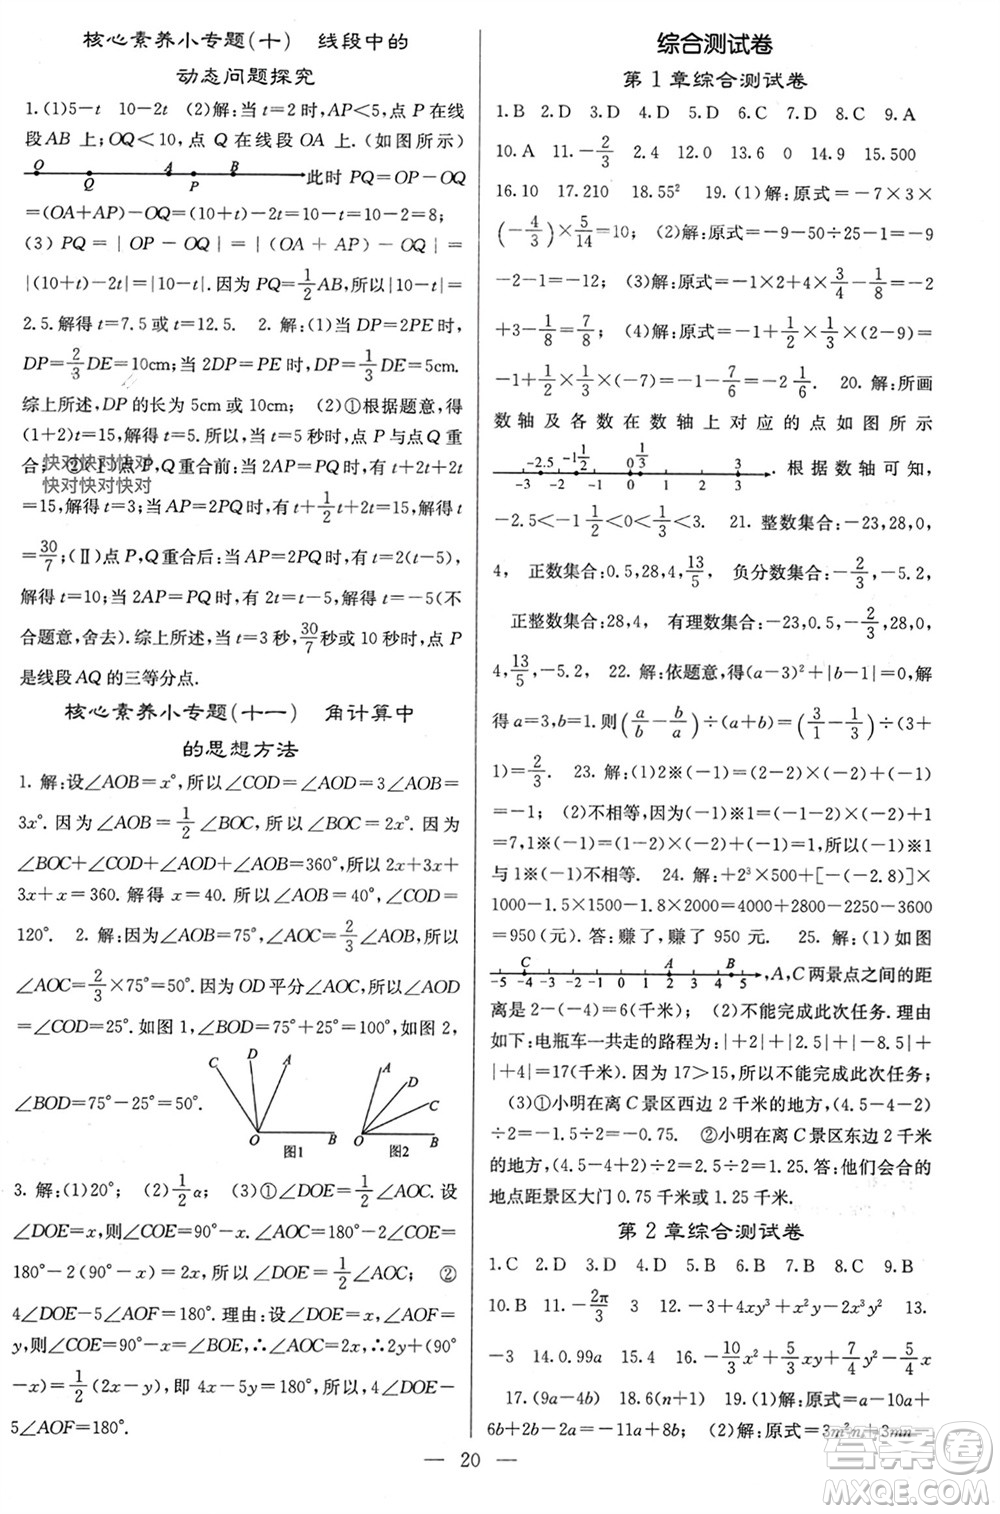 核心素养小专题(十)　线段中的
动态问题探究
1.(1)5－t　10－2t　(2)解:当 t＝2 时,AP＜5,点 P 在线
段AB 上;OQ＜10,点 Q 在线段 OA 上.(如图所示)
O Q A P B 此时 PQ＝OP－OQ
＝(OA＋AP)－OQ＝(10＋t)－2t＝10＋2－2×2＝8;
(3) PQ＝| OP－OQ |＝|(OA＋AP)－OQ |＝
|(10＋t)－2t|＝|10－t|. 因为 PQ＝1/2 AB,所以|10－t|＝
2.5. 解得 t＝7.5 或 t＝12.5.　2. 解:(1)当 DP＝2PE时,
DP＝2/3 DE＝10cm;当 2DP＝PE 时,DP＝1/3 DE＝5cm.
综上所述,DP 的长为 5cm 或 10cm;　(2)①根据题意,得
(1＋2)t＝15,解得 t＝5. 所以,当 t＝5 秒时,点 P 与点 Q 重
合;　②(Ⅰ)点 P,Q 重合前:当 2AP＝PQ 时,有 t＋2t＋2t
快对快对快对
快对快对快对
＝15,解得 t＝3;当 AP＝2PQ 时,有 t＋1/2 t＋2t＝15,解得 t＝
30/7;(Ⅱ)点 P,Q 重合后:当 AP＝2PQ 时,有 t＝2(t－5),
解得 t＝10;当 2AP＝PQ 时,有 2t＝t－5,解得 t＝－5(不
合题意,舍去). 综上所述,当 t＝3 秒,30/7秒或 10 秒时,点 P
是线段 AQ 的三等分点.
核心素养小专题(十一)　角计算中
的思想方法
1. 解:设∠AOB＝x°,所以∠COD＝∠AOD＝3∠AOB＝
3x°. 因为∠AOB＝1/2∠BOC,所以∠BOC＝2x°. 因为
∠BOC＋∠COD＋∠AOD＋∠AOB＝360°,所以 2x＋3x＋
3x＋x＝360. 解得 x＝40. 所以∠AOB＝40°,∠COD＝
120°.　2. 解:因为∠AOB＝75°,∠AOC＝2/3∠AOB,所以
∠AOC＝2/3×75°＝50°. 因为 OD 平分∠AOC,所以∠AOD
＝∠COD＝25°. 如图 1,∠BOD＝75°＋25°＝100°,如图 2,
∠BOD＝75°－25°＝50°.
C D A O B 图1
A D C O B 图2
3. 解:(1)20°;　(2)1/2α;　(3)①∠DOE＝1/2∠AOC. 设
∠DOE＝x,则∠COE＝90°－x,∠AOC＝180°－2∠COE＝
180°－2(90°－x)＝2x,所以∠DOE＝1/2∠AOC;　②
4∠DOE－5∠AOF＝180°. 理由:设∠DOE＝x,∠AOF＝
y,则∠COE＝90°－x＝∠BOE,∴∠AOC＝2x,∴y＋(90°
－x)＝1/2(2x－y),即 4x－5y＝180°,所以 4∠DOE－
5∠AOF＝180°.
综合测试卷
第 1 章综合测试卷
1. B　2. D　3. D　4. D　5. C　6. B　7. D　8. C　9. A
10. A　11.－2/3　2.4　12.0　13.6　0　14.9　15.500
16.10　17.210　18.55²　19.(1)解:原式＝－7×3×
(－4/3)×5/14＝10;　(2)解:原式＝－9－50÷25－1＝－9
－2－1＝－12;　(3)解:原式＝－1×2＋4×3/4－1/8＝－2
＋3－1/8＝7/8;　(4)解:原式＝－1＋1/2×1/3×(2－9)＝
－1＋1/2×1/3×(－7)＝－1－7/6＝－2 1/6.　20. 解:所画
数轴及各数在数轴上对应的点如图所示
－2.5 －1 1/2 0 1/3 3 －3 －2 －1 0 1 2 3 . 根据数轴可知,
－2.5＜－1 1/2＜0＜1/3＜3.　21. 整数集合:－23,28,0,
4,　正数集合:0.5,28,4,13/5,　负分数集合:－2/3,－5.2,
正整数集合:28,4,　有理数集合:－23,0.5,－2/3,28,0,
4,13/5,－5.2.　22. 解:依题意,得(a－3)²＋|b－1|＝0,所
以 a＝3,b＝1. 则(a/b－b/a)÷(a＋b)＝(3/1－1/3)÷(3＋
1)＝2/3.　23. 解:(1)2※(－1)＝2×(－1)－(－2)＋(－1)
＝－1;　(2)不相等,因为(－1)※1＝(－1)×1－(－2)＋1
＝7,1※(－1)＝1×(－1)－(－2)＋(－1)＝0,所以(－1)※1
与1※(－1)不相等.　24. 解:＋2³×500＋[－(－2.8)]×
1000－1.5×1500－1.8×2000＝4000＋2800－2250－3600
＝950(元). 答:赚了,赚了 950 元.　25. 解:(1)如图
C A B －5 －4 －3 －2 －1 0 1 2 3 4 5 ,A,C 两景点之间的距
离是 2－(－4)＝6(千米);　(2)不能完成此次任务. 理由
如下:电瓶车一共走的路程为:|＋2|＋|2.5|＋|－8.5|＋
|＋4|＝17(千米). 因为 17＞15,所以不能完成此次任务;
(3)①小明在离 C 景区西边 2 千米的地方,(4.5－4－2)
÷2＝(－1.5)÷2＝－0.75.　②小明在离 C 景区东边 2 千米
的地方,(4.5－4＋2)÷2＝2.5÷2＝1.25. 答:他们会合的
地点距景区大门 0.75 千米或 1.25 千米.
第 2 章综合测试卷
1. C　2. D　3. B　4. D　5. D　6. C　7. A　8. D　9. B
10. B　11.－2π/3　3　12.－3＋4xy³＋x²y－3x³y²　13.
－3　14.0.99a　15.4　16.－10/3 x²＋1/2 xy＋7/4 y²－5/4 x
17.(9a－4b)　18.6(n＋1)　19.(1)解:原式＝a－10a＋
6b＋2b－2a＝－11a＋8b;　(2)解:原式＝3m²n＋3mn
— 20 —
答案圈
MXQE.COM